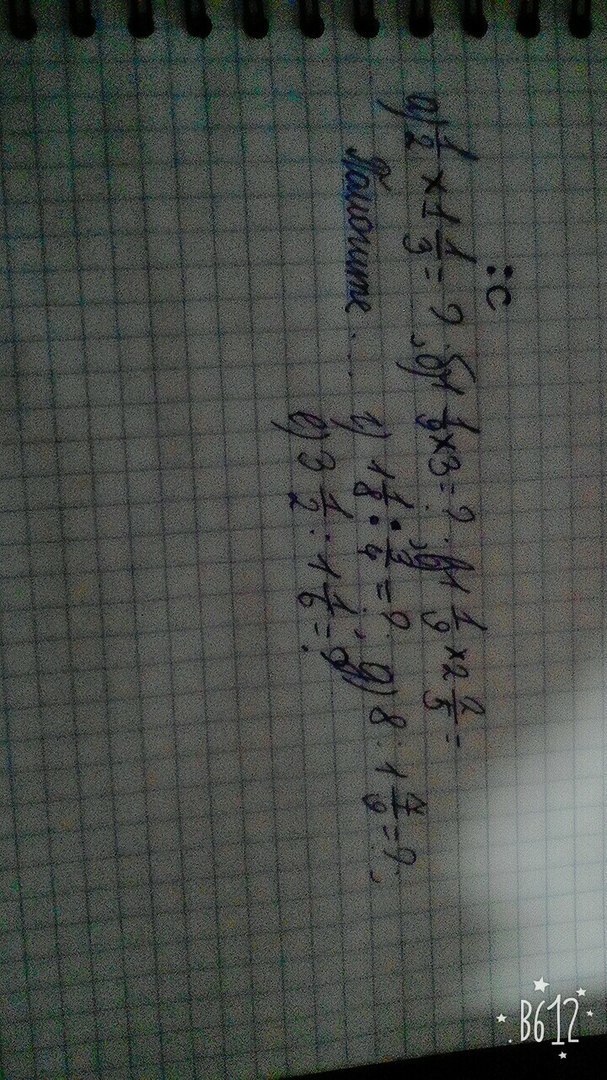 :c
а) 1/2 × 1 1/3 = ?, б) 1 1/9 × 3 = ?. в) 1 1/9 × 2 2/5 =
Помогите ... г) 1 1/8 : 3/4 = ?. д) 8 : 1 7/9 = ?.
е) 3 1/2 : 1 1/6 = ?
B612